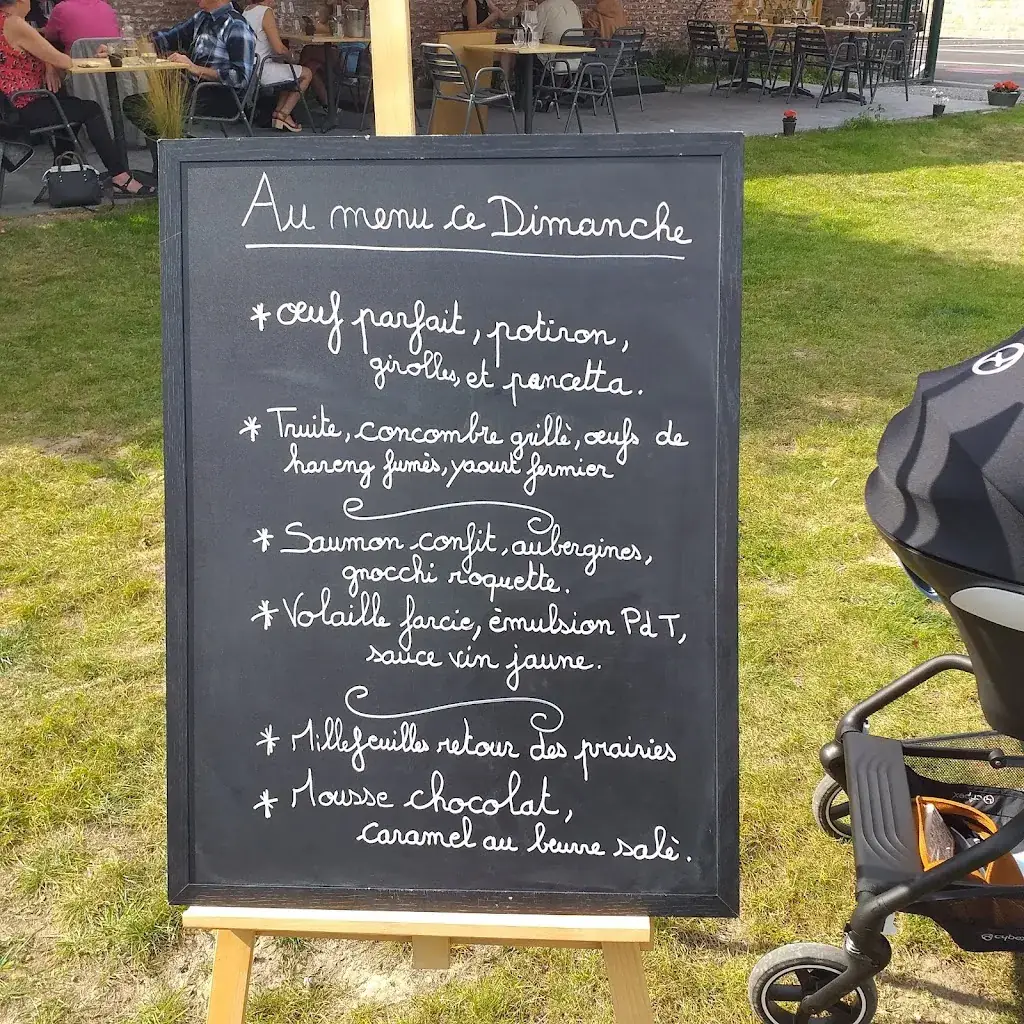 Au menu ce Dimanche
* Œuf parfait, potiron,
girolles, et pancetta.
* Truite, concombre grillè, œufs de
hareng fumès, yaourt fermier
* Saumon confit, aubergines,
gnocchi roquette.
* Volaille farcie, èmulsion PdT,
sauce vin jaune.
* Millefeuilles retour des prairies
* Mousse chocolat,
caramel au beurre salè.
cybex